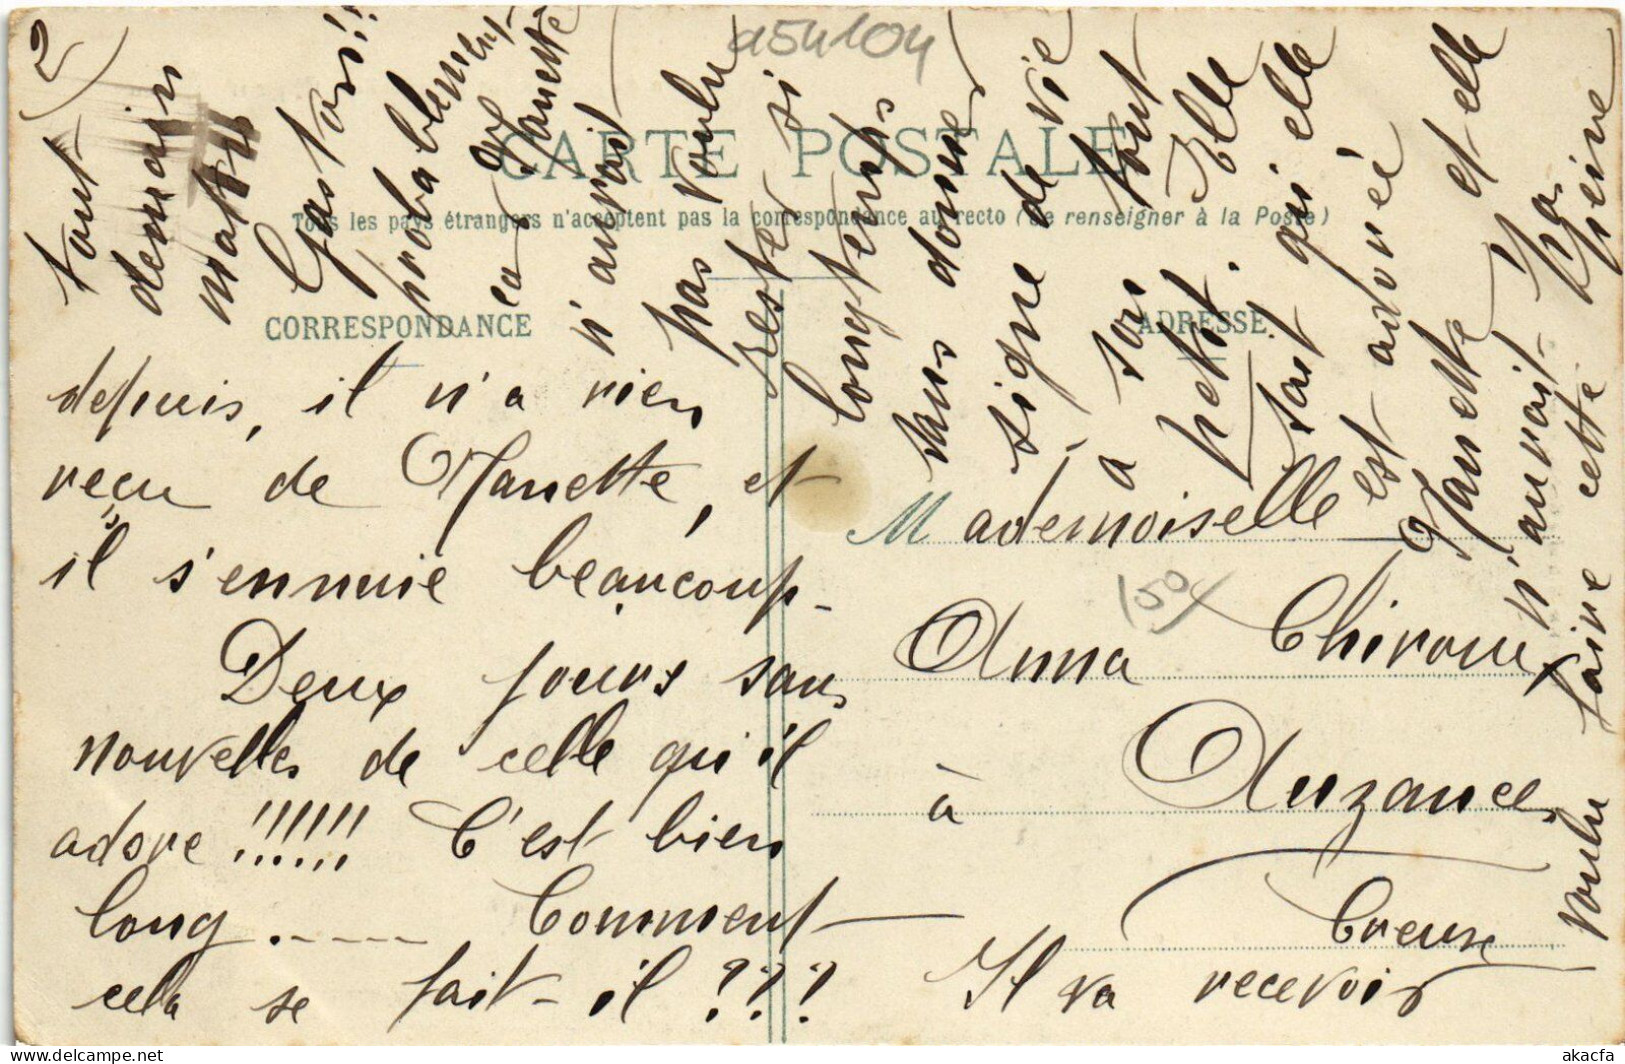 2)
a54104
CARTE POSTALE
Tous les pays étrangers n'acceptent pas la correspondance au recto (se renseigner à la Poste)
CORRESPONDANCE
ADRESSE
depuis, il n'a rien
reçu de Manette, et
il s'ennuie beaucoup-
Deux jours sans
nouvelles de celle qu'il
adore !!!!!! C'est bien
long .----- Comment
cela se fait-il ???
Mademoiselle
Anna Chiroux
à Auzances
Creuse
150f
Il va recevoir
tout
demain
matin
Gaston!!
probablement
car Manette
n'aurait
pas voulu
rester si
longtemps
sans donner
signe de vie
à son tout
petit. Elle
sait qu'elle
est adorée
Manette et elle
n'aurait pas
voulu faire cette peine
akacfa